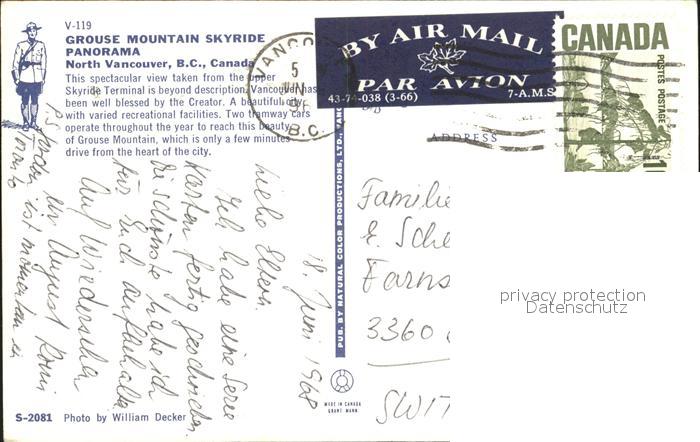 V-119
GROUSE MOUNTAIN SKYRIDE
PANORAMA
North Vancouver, B.C., Canada
This spectacular view taken from the upper
Skyride Terminal is beyond description. Vancouver has
been well blessed by the Creator. A beautiful city
with varied recreational facilities. Two tramway cars
operate throughout the year to reach this beauty
of Grouse Mountain, which is only a few minutes
drive from the heart of the city.
VANCO
5
B.C.
BY AIR MAIL
PAR AVION
43-74-038 (3-66)
7-A.M.S
CANADA
POSTES POSTAGE
ADDRESS
18. Juni 1968
Liebe Eltern.
Ich habe eine Serie
Karten fertig geschrieben.
Die schönste habe ich
für Euch aufbehalten
Auf Wiedersehen
im August Romi
P.S.
ist momentan in
PUB. BY NATURAL COLOR PRODUCTIONS, LTD., VAN
Familie
E. Sche
Farns
3360
SWIT
MADE IN CANADA
GRANT MANN
S-2081 Photo by William Decker
privacy protection
Datenschutz